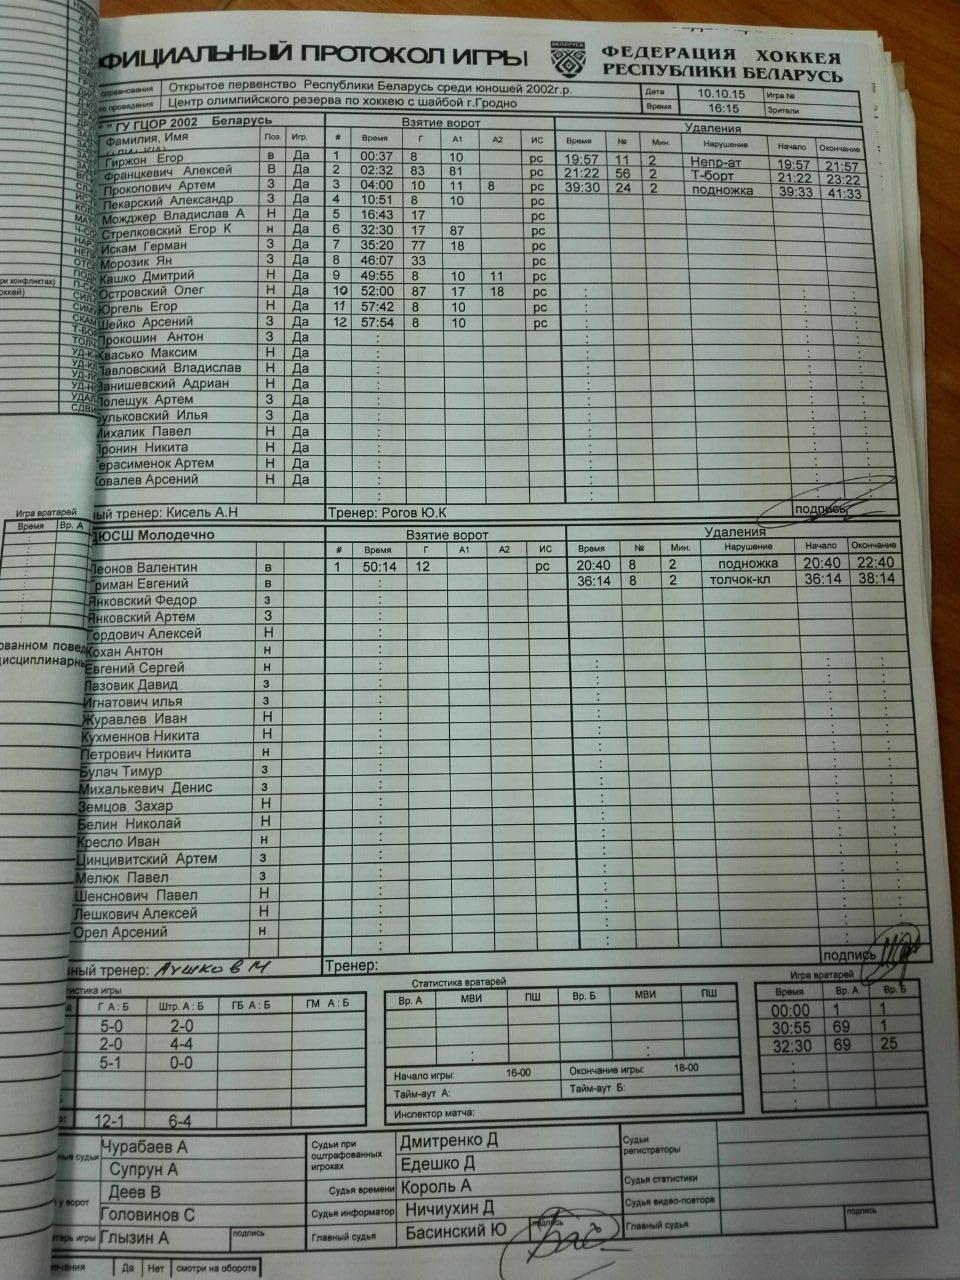 ФИЦИАЛЬНЫЙ ПРОТОКОЛ ИГРЫ
БЕЛАРУСЬ
ФЕДЕРАЦИЯ ХОККЕЯ
РЕСПУБЛИКИ БЕЛАРУСЬ
соревнования Открытое первенство Республики Беларусь среди юношей 2002г.р. Дата 10.10.15 Игра №
проведения Центр олимпийского резерва по хоккею с шайбой г.Гродно Время 16:15 Зрители
" " ГУ ГЦОР 2002 Беларусь Взятие ворот Удаления
Фамилия, Имя Поз. Игр. # Время Г А1 А2 ИС Время № Мин. Нарушение Начало Окончание
Гиржон Егор в Да 1 00:37 8 10 рс 19:57 11 2 Непр-ат 19:57 21:57
Францкевич Алексей В Да 2 02:32 83 81 рс 21:22 56 2 Т-борт 21:22 23:22
Прокопович Артем З Да 3 04:00 10 11 8 рс 39:30 24 2 подножка 39:33 41:33
Пекарский Александр З Да 4 10:51 8 10 рс
Можджер Владислав А Н Да 5 16:43 17 рс
Стрелковский Егор К н Да 6 32:30 17 87 рс
Искам Герман З Да 7 35:20 77 18 рс
Морозик Ян З Да 8 46:07 33 рс
Кашко Дмитрий Н Да 9 49:55 8 10 11 рс
Островский Олег Н Да 10 52:00 87 17 18 рс
Юргель Егор Н Да 11 57:42 8 10 рс
Шейко Арсений З Да 12 57:54 8 10 рс
Прокошин Антон З Да
Квасько Максим Н Да
Павловский Владислав Н Да
Занишевский Адриан Н Да
Полещук Артем З Да
Бульковский Илья З Да
Михалик Павел Н Да
Пронин Никита Н Да
Герасименок Артем Н Да
Ковалев Арсений Н Да
ный тренер: Кисель А.Н Тренер: Рогов Ю.К подпись
ДЮСШ Молодечно Взятие ворот Удаления
# Время Г А1 А2 ИС Время № Мин. Нарушение Начало Окончание
Леонов Валентин в 1 50:14 12 рс 20:40 8 2 подножка 20:40 22:40
Гриман Евгений в 36:14 8 2 толчок-кл 36:14 38:14
Янковский Федор з
Янковский Артем З
Гордович Алексей Н
Кохан Антон н
Евгений Сергей н
Лазовик Давид з
Игнатович илья з
Журавлев Иван Н
Кухменнов Никита Н
Петрович Никита н
Булач Тимур з
Михалькевич Денис з
Земцов Захар Н
Белин Николай Н
Кресло Иван н
Цинцивитский Артем з
Мелюк Павел з
Шенснович Павел Н
Лешкович Алексей Н
Орел Арсений н
ный тренер: Аушков М Тренер: подпись
Статистика игры
Г А : Б Штр. А : Б ГБ А : Б ГМ А : Б
5-0 2-0
2-0 4-4
5-1 0-0
12-1 6-4
Статистика вратарей
Вр. А МВИ ПШ Вр. Б МВИ ПШ
Начало игры: 16-00 Окончание игры: 18-00
Тайм-аут А: Тайм-аут Б:
Инспектор матча:
Игра вратарей
Время Вр. А Вр. Б
00:00 1 1
30:55 69 1
32:30 69 25
ные судьи Чурабаев А
Супрун А
у ворот Деев В
Головинов С
арь игры Глызин А подпись
Судьи при оштрафованных игроках Дмитренко Д
Едешко Д
Судья времени Король А
Судья информатор Ничиухин Д
Главный судья Басинский Ю подпись
Судьи регистраторы
Судья статистики
Судья видео-повтора
Главный судья подпись
мечания Да Нет смотри на обороте
Игра вратарей
Время Вр. А